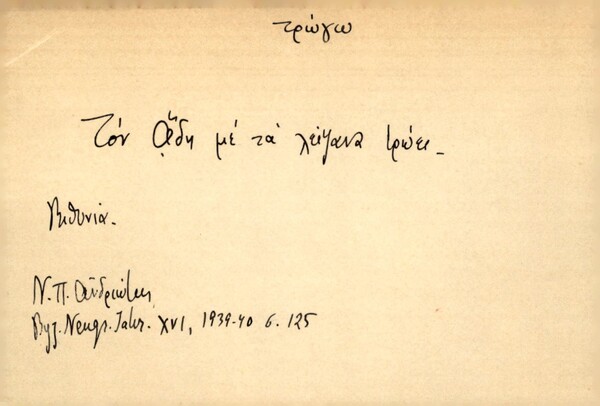 τρώγω
Τόν ᾅδη μέ τά λείψανα τρώει_
Βιθυνία_
Ν. Π. Ἀνδριώτης
Βυζ. Νeugr. Jahr. XVI, 1939-40 σ. 125